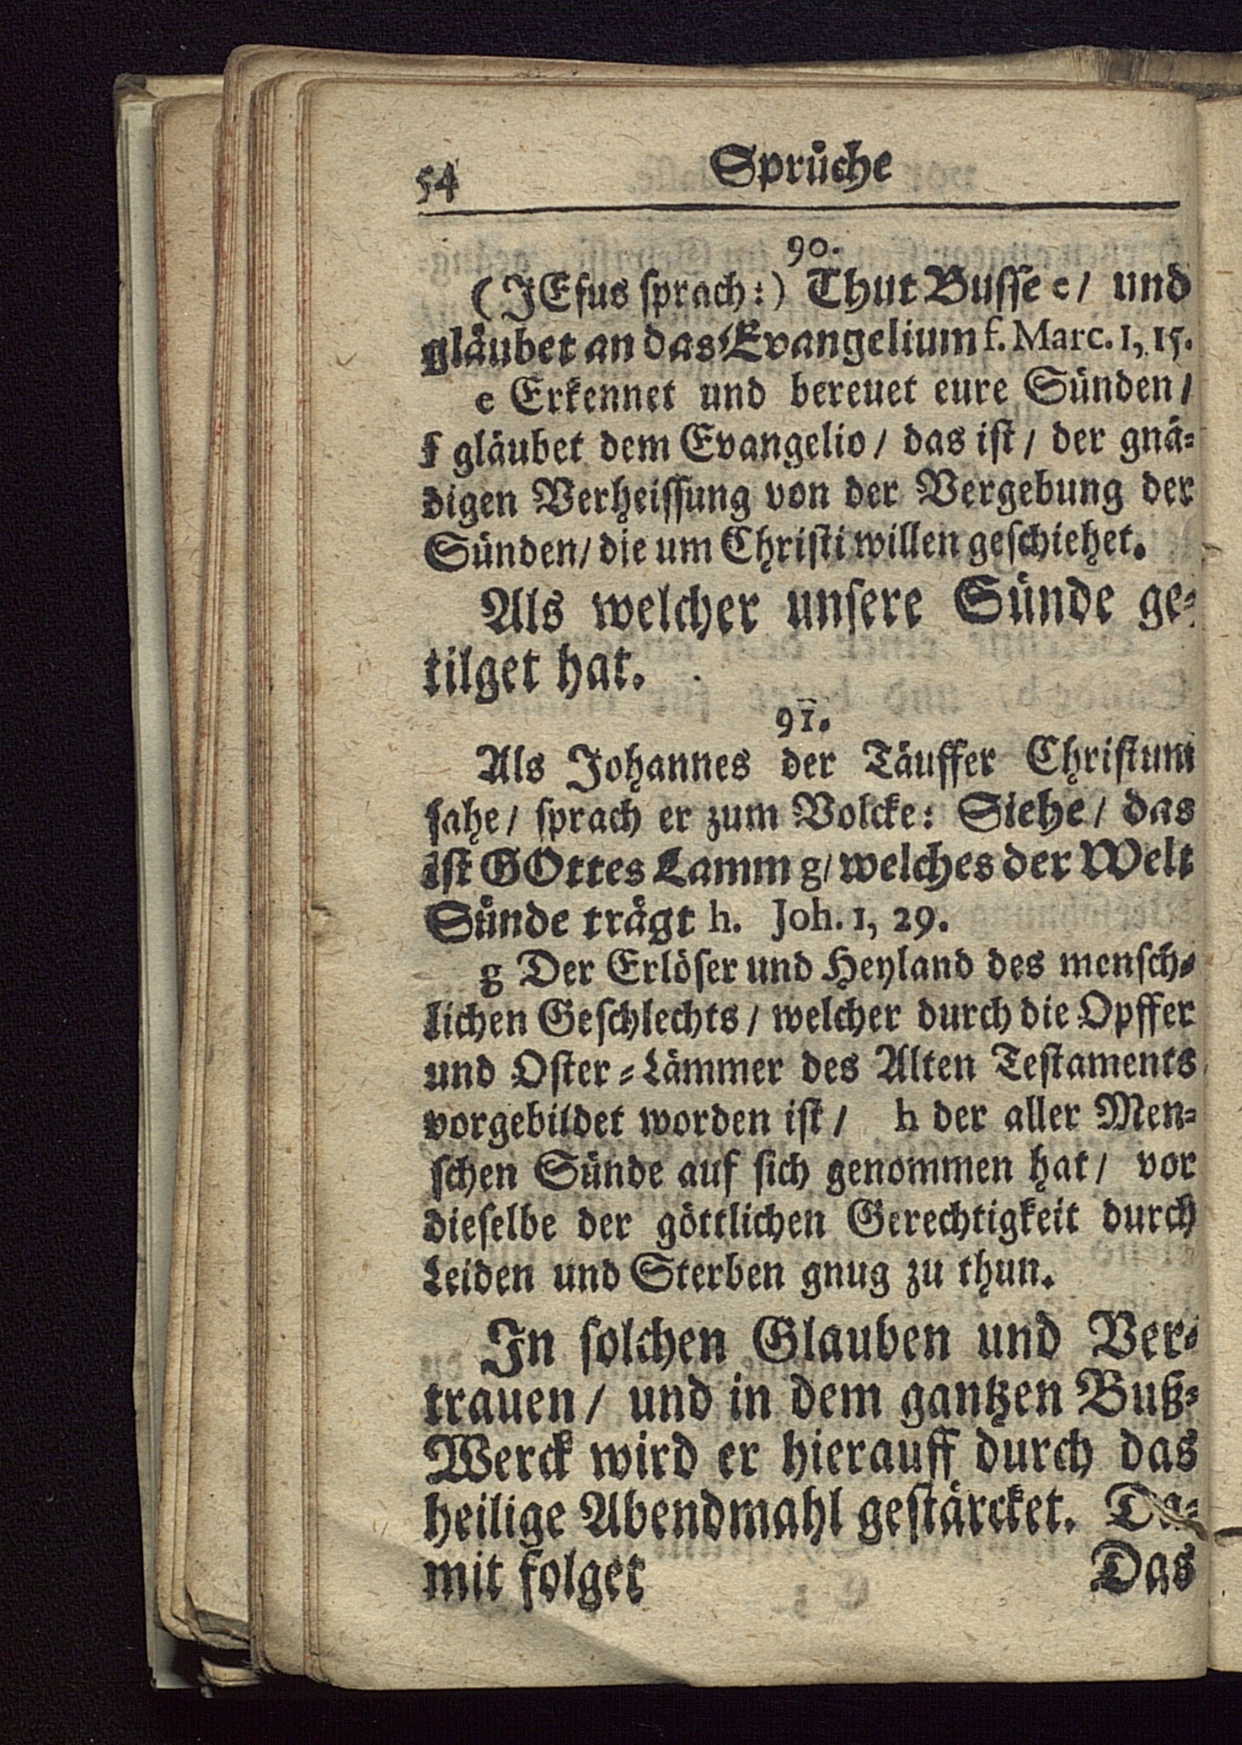 54 Sprüche
90.
(JEſus ſprach:) Thut Buſſe e/ und
gläubet an das Evangelium f. Marc. 1, 15.
e Erkennet und bereuet eure Sünden/
f gläubet dem Evangelio/ das iſt/ der gnä-
digen Verheiſſung von der Vergebung der
Sünden/ die um Chriſti willen geſchiehet.
Als welcher unſere Sünde ge-
tilget hat.
91.
Als Johannes der Täuffer Chriſtum
ſahe/ ſprach er zum Volcke: Siehe/ das
iſt GOttes Lamm g/ welches der Welt
Sünde trägt h. Joh. 1, 29.
g Der Erlöſer und Heyland des menſch-
lichen Geſchlechts/ welcher durch die Opffer
und Oſter-Lämmer des Alten Teſtaments
vorgebildet worden iſt/ h der aller Men-
ſchen Sünde auf ſich genommen hat/ vor
dieſelbe der göttlichen Gerechtigkeit durch
Leiden und Sterben gnug zu thun.
In ſolchen Glauben und Ver-
trauen/ und in dem gantzen Buß-
Werck wird er hierauff durch das
heilige Abendmahl geſtärcket. Da-
mit folget
Das